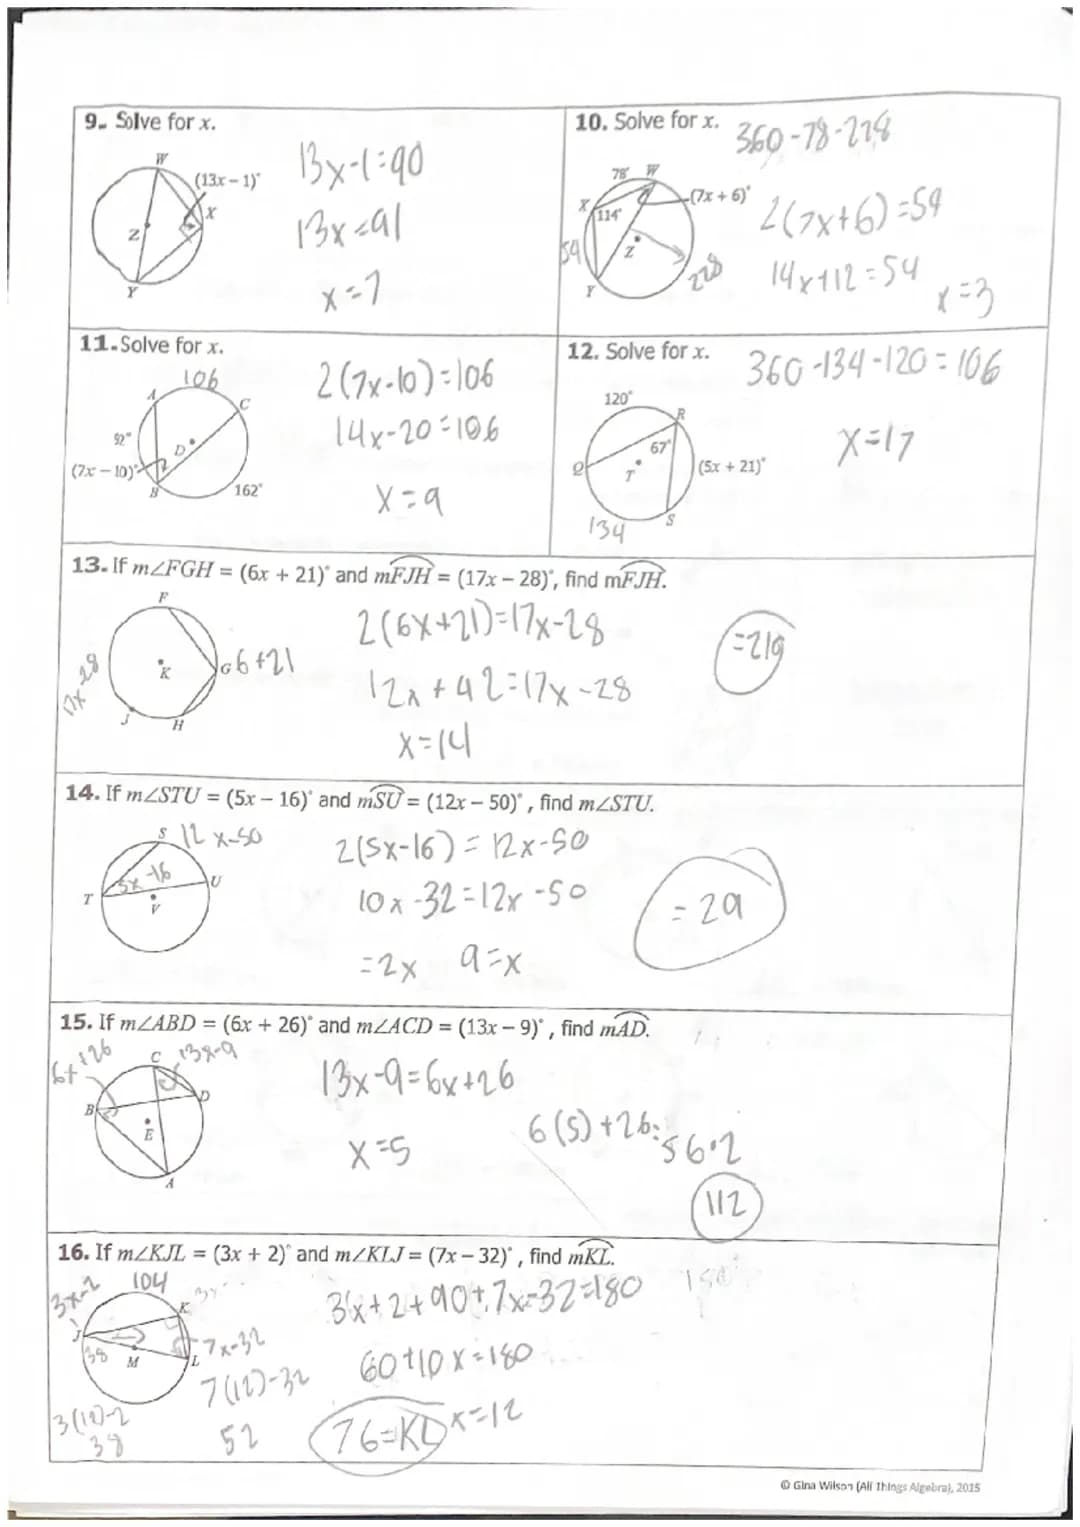 9. Solve for x.
W
(13x – 1)°
X
Z
Y
13x-1=90
13x=91
x=7
10. Solve for x.
360-78-228
78° W
X
(7x + 6)°
114°
54
Z
Y
228
2(7x+6)=54
14x+12=54
x=3
11. Solve for x.
106
A
C
92°
D
(7x – 10)°
B
162°
2(7x-10)=106
14x-20=106
x=9
12. Solve for x.
360-134-120=106
120°
R
67°
Q
T
(5x + 21)°
S
134
x=17
13. If m∠FGH = (6x + 21)° and mFJH = (17x – 28)°, find mFJH.
F
K
G 6+21
17x-28
J
H
2(6x+21)=17x-28
12x+42=17x-28
x=14
=210
14. If m∠STU = (5x – 16)° and mSU = (12x – 50)°, find m∠STU.
S 12x-50
5x-16
T
U
V
2(5x-16)=12x-50
10x-32=12x-50
=2x 9=x
=29
15. If m∠ABD = (6x + 26)° and m∠ACD = (13x – 9)°, find mAD.
C 13x-9
B
D
E
A
13x-9=6x+26
x=5
6(5)+26=
56·2
112
16. If m∠KJL = (3x + 2)° and m∠KLJ = (7x – 32)°, find mKL.
3x-2
104
K
J
38
M
L
7x-32
7(12)-32
52
3(12)-2
38
3x+2+90+7x-32=180
60+10x=180
x=12
76=KL
© Gina Wilson (All Things Algebra), 2015